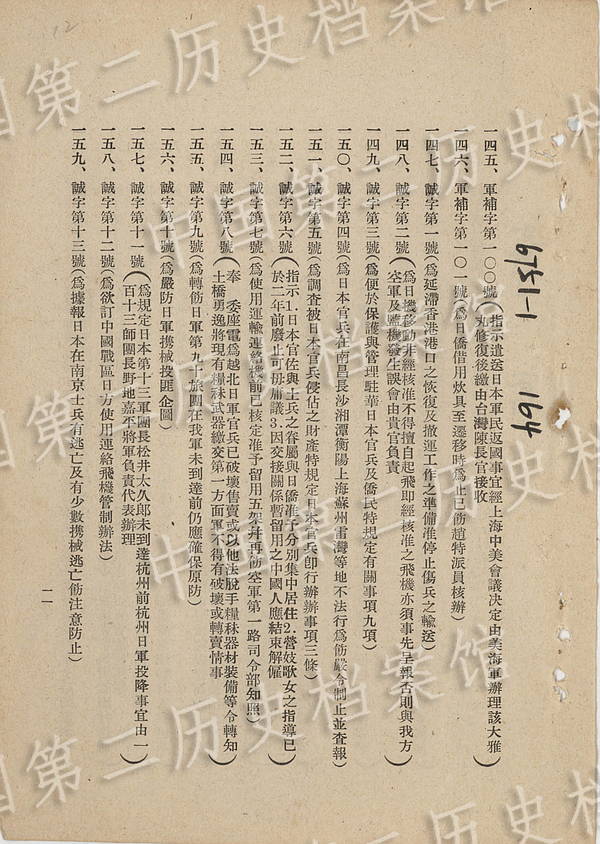 12
6751-1
164
一四五、軍補字第一〇〇號(指示遣送日本軍民返國事宜經上海中美會議決定由美海軍辦理該大雅
丸修復後繳由台灣陳長官接收)
一四六、軍補字第一〇一號(為日僑借用炊具至遷移時為止已飭趙特派員核辦)
一四七、誠字第一號(為延滯香港港口之恢復及撤運工作之準備准停止傷兵之輸送)
一四八、誠字第二號(為日機移動非經核准不得擅自起飛即經核准之飛機亦須事先呈報否則與我方
空軍及盟機發生誤會由貴官負責)
一四九、誠字第三號(為便於保護與管理駐華日本官兵及僑民特規定有關事項九項)
一五〇、誠字第四號(為日本官兵在南昌長沙湘潭衡陽上海蘇州臿灣等地不法行為飭嚴令制止並查報)
一五一、誠字第五號(為調查被日本官兵侵佔之財產特規定日本官兵卽行辦辦事項三條)
一五二、誠字第六號(指示1.日本官佐與士兵之眷屬與日僑准予分別集中居住2.營妓歌女之指導已
於二年前廢止可毋庸議3.因交接關係暫留用之中國人應結束解僱)
一五三、誠字第七號(為使用運輸連絡機前已核定准予留用五架幷再飭空軍第一路司令部知照)
一五四、誠字第八號(奉 委座電為越北日軍官兵已破壞售賣或以他法脫手糧秣器材裝備等令轉知
土橋勇逸將現有糧秣武器繳交第一方面軍不得有破壞或轉賣情事)
一五五、誠字第九號(為轉飭日軍第九十旅團在我軍未到達前仍應確保原防)
一五六、誠字第十號(為嚴防日軍携械投匪企圖)
一五七、誠字第十一號(為規定日本第十三軍團長松井太久郎未到達杭州前杭州日軍投降事宜由一
百十三師團長野地嘉平將軍負責代表辦理)
一五八、誠字第十二號(為欲訂中國戰區日方使用連絡飛機管制辦法)
一五九、誠字第十三號(為據報日本在南京士兵有逃亡及有少數携械逃亡飭注意防止)
一一
中国第二历史档案馆